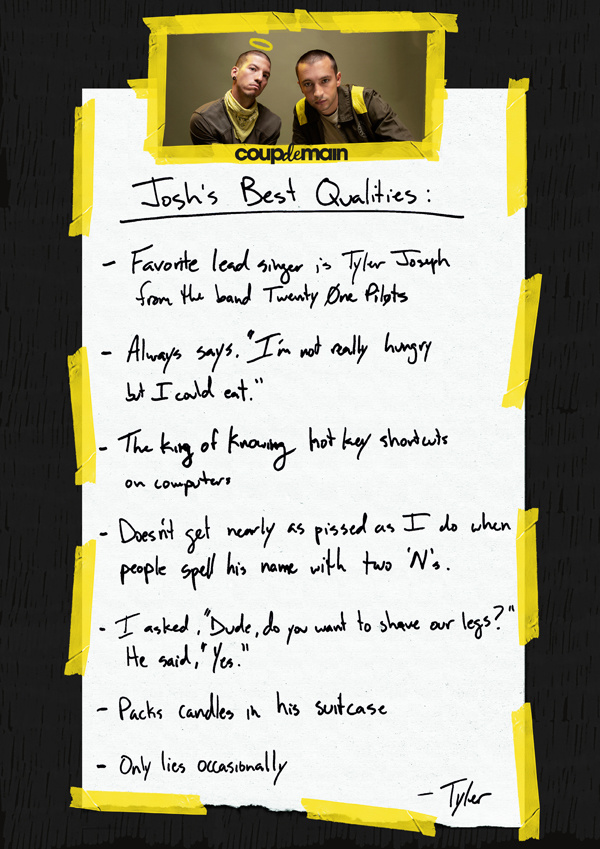 coupdemain
Josh's Best Qualities:
- Favorite lead singer is Tyler Joseph
from the band Twenty Øne Pilots
- Always says, "I'm not really hungry
but I could eat."
- The king of knowing hot key shortcuts
on computers
- Doesn't get nearly as pissed as I do when
people spell his name with two 'N's.
- I asked, "Dude, do you want to shave our legs?"
He said, "Yes."
- Packs candles in his suitcase
- Only lies occasionally
- Tyler